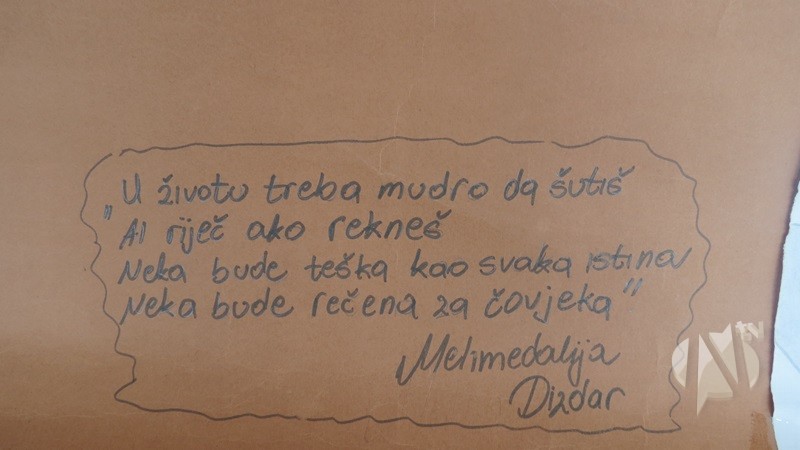 U životu treba mudro da šutiš
"Al riječ ako rekneš
Neka bude teška kao svaka istina
Neka bude rečena za čovjeka"
Melimedalija
Dizdar
tv